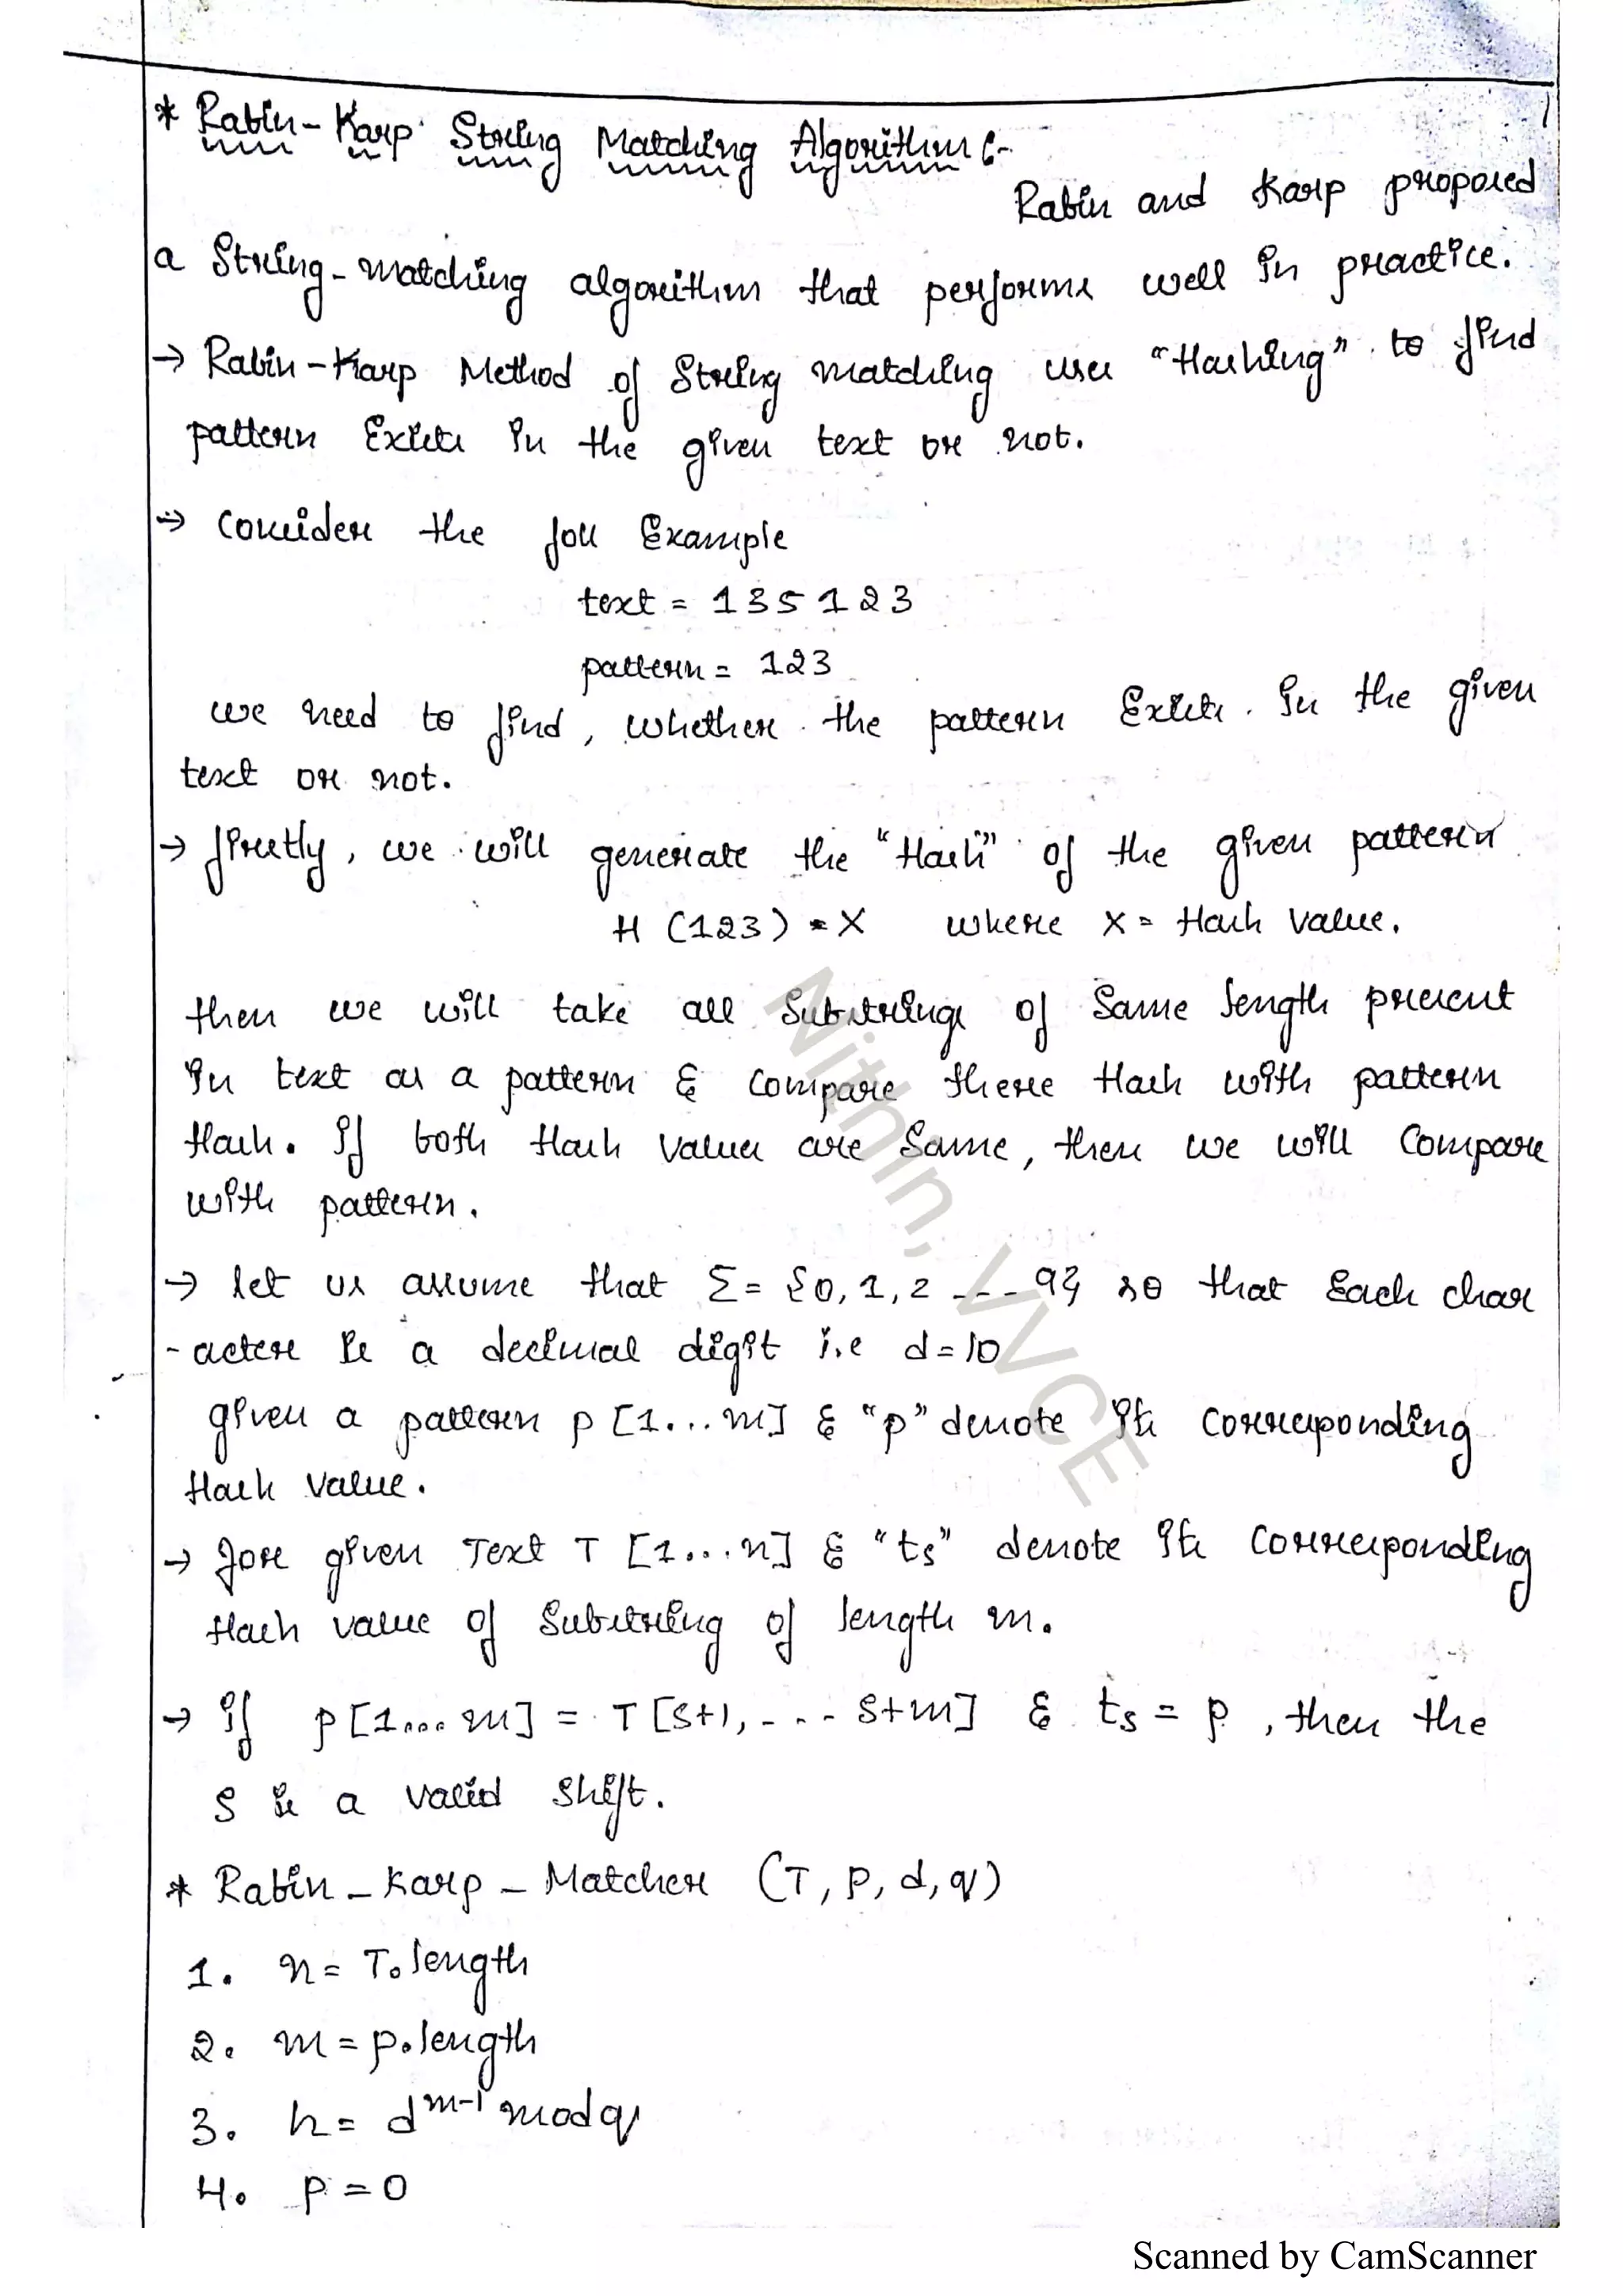 * Rabin-Karp String Matching Algorithm :-
Rabin and Karp proposed
a String-matching algorithm that performs well in practice.
→ Rabin-Karp Method of String matching uses "Hashing" to find
pattern Exists in the given text or not.
→ Consider the foll Example
text = 135123
pattern = 123
we need to find, whether the pattern Exists in the given
text or not.
→ firstly, we will generate the "Hash" of the given pattern
H (123) = X where X = Hash value.
then we will take all substrings of same length present
in text as a pattern & compare there Hash with pattern
Hash. If both Hash values are same, then we will compare
with pattern.
→ let us assume that Σ = {0, 1, 2 --- 9} so that each char
-acter is a decimal digit i.e d=10
given a pattern p [1...m] & "p" denote its corresponding
Hash value.
→ for given Text T [1...n] & "ts" denote its corresponding
Hash value of substring of length m.
→ if p[1...m] = T[s+1, --- s+m] & ts = p, then the
s is a valid shift.
* Rabin-Karp-Matcher (T, P, d, q)
1. n = T.length
2. m = p.length
3. h = d^m-1 mod q
4. p = 0
Nithin, VVCE
Scanned by CamScanner